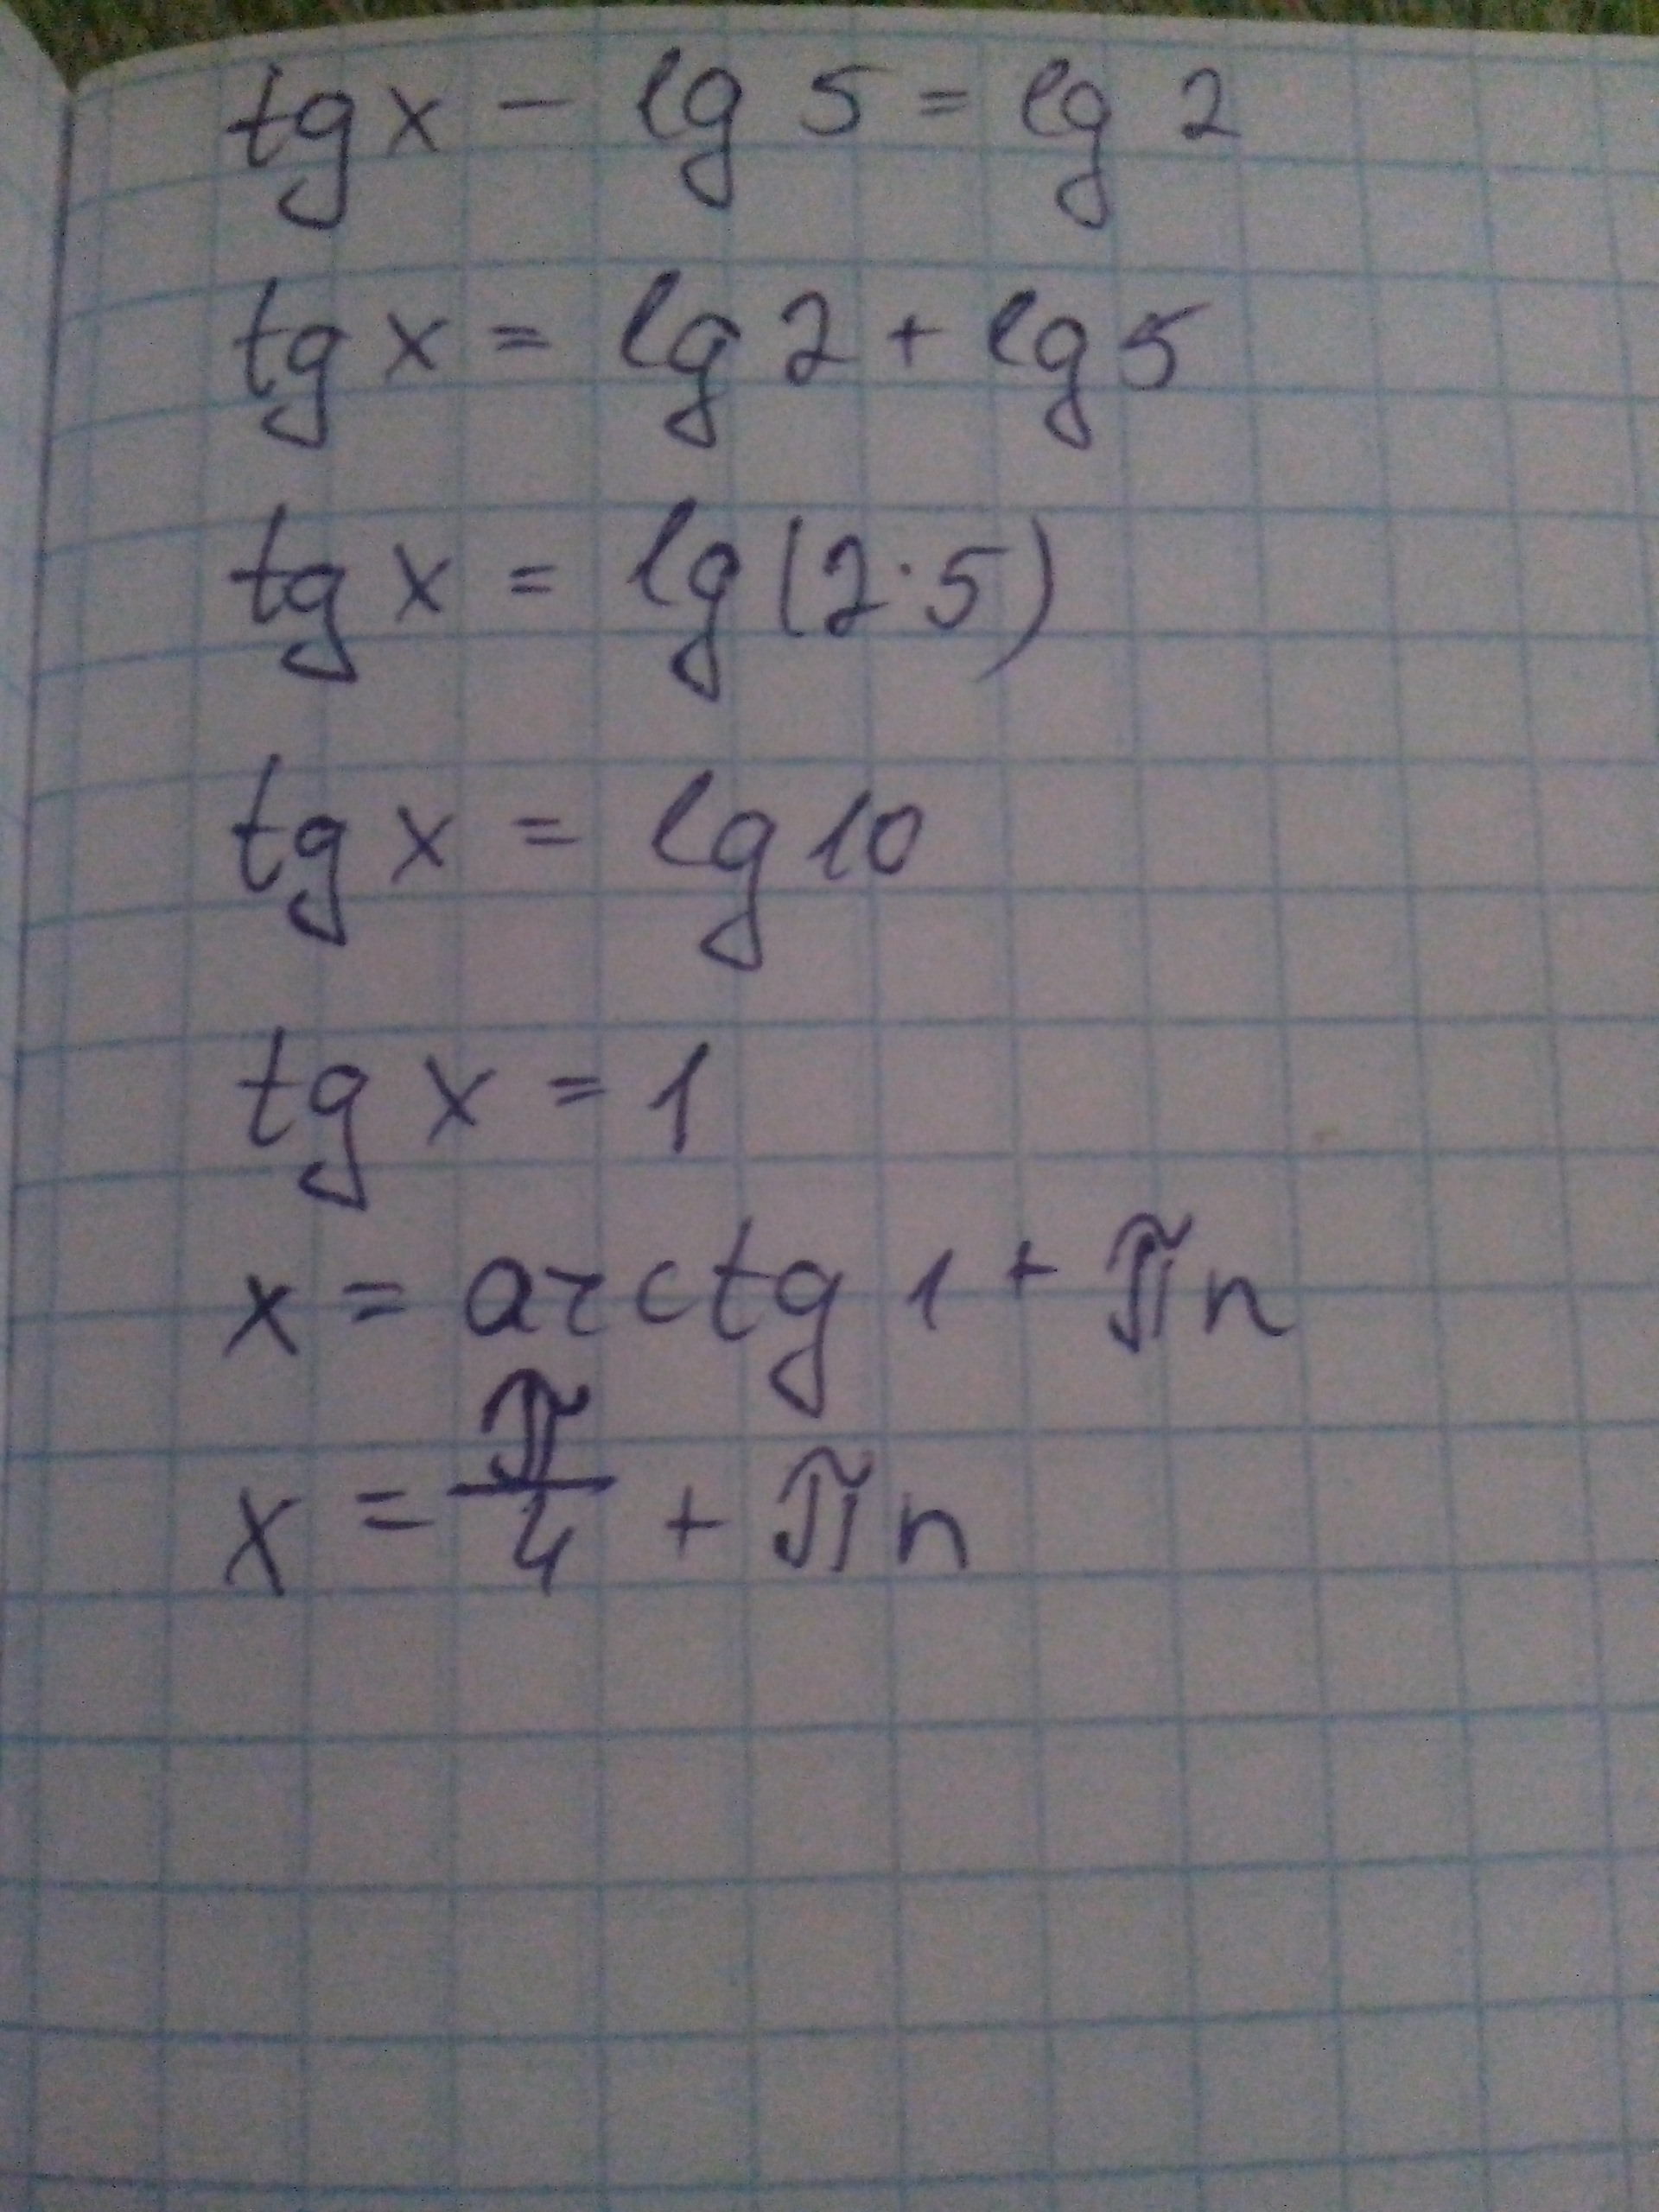 tg x − lg 5 = lg 2
tg x = lg 2 + lg 5
tg x = lg (2·5)
tg x = lg 10
tg x = 1
x = arctg 1 + πn
x = π/4 + πn